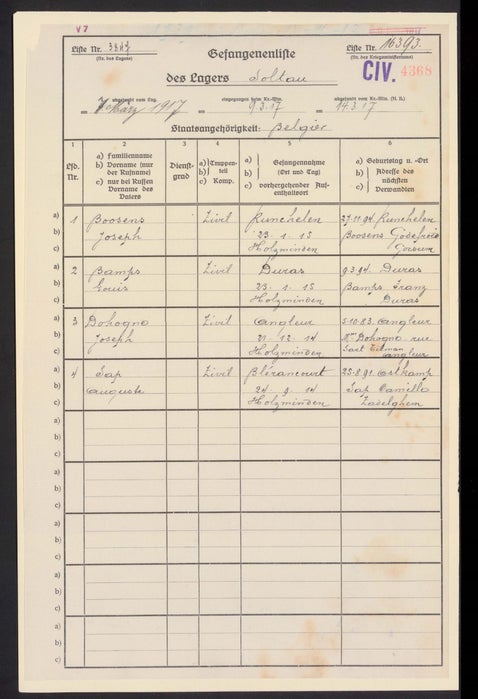 V 7
Liste Nr. 3847
(Nr. des Lagers)
Gefangenenliste
Liste Nr. 16393.
(Nr. des Kriegsministeriums)
des Lagers Soltau
CIV. 4368
abgesandt vom Lag.
eingegangen beim Kr.-Min.
abgesandt vom Kr.-Min. (N. B.)
— 7 März 1917
— 9.3.17
— 14.3.17
Staatsangehörigkeit: Belgier
1 2 3 4 5 6
Lfd. Nr.
a) Familienname
b) Vorname (nur der Rufname)
c) nur bei Russen Vorname des Vaters
Dienstgrad
a) Truppen-
b) teil
c) Komp.
a) Gefangennahme
b) (Ort und Tag)
c) vorhergehender Aufenthaltsort
a) Geburtstag u. -Ort
b) Adresse des
c) nächsten Verwandten
a) 1 Boosens Zivil Runchelen 27.11.94 Runchelen
b) Joseph 23.1.15 Boosens Godefroid
c) Holzminden
a) 2 Bamps Zivil Duras 9.3.94. Duras
b) Louis 23.1.15 Bamps Franz
c) Holzminden Duras
a) 3 Dohogno Zivil Angleur 5.10.83. Angleur
b) Joseph 21.12.14 Dohogno rue
c) Holzminden Sart Tilman Angleur
a) 4 Jap Zivil Blérancourt 25.8.91. Ostkamp
b) Auguste 24.9.14 Jap Camillo
c) Holzminden Zadelghem
a)
b)
c)
a)
b)
c)
a)
b)
c)
a)
b)
c)
a)
b)
c)